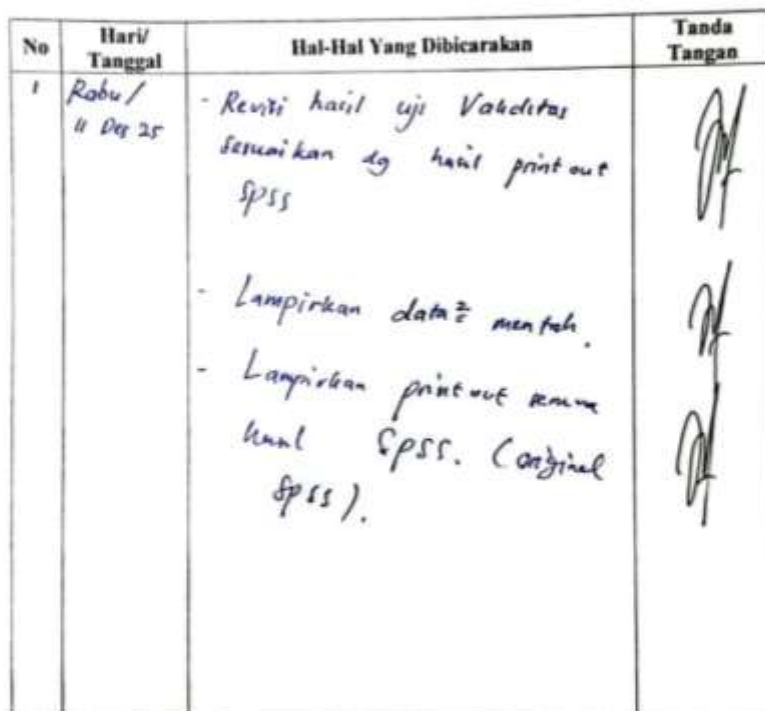 No
Hari/
Tanggal
Hal-Hal Yang Dibicarakan
Tanda
Tangan
1
Rabu/
11 Des 25
- Revisi hasil uji Validitas
sesuaikan dg hasil print out
SPSS
- Lampirkan data² mentah.
- Lampirkan print out semua
hasil SPSS. (original
SPSS).